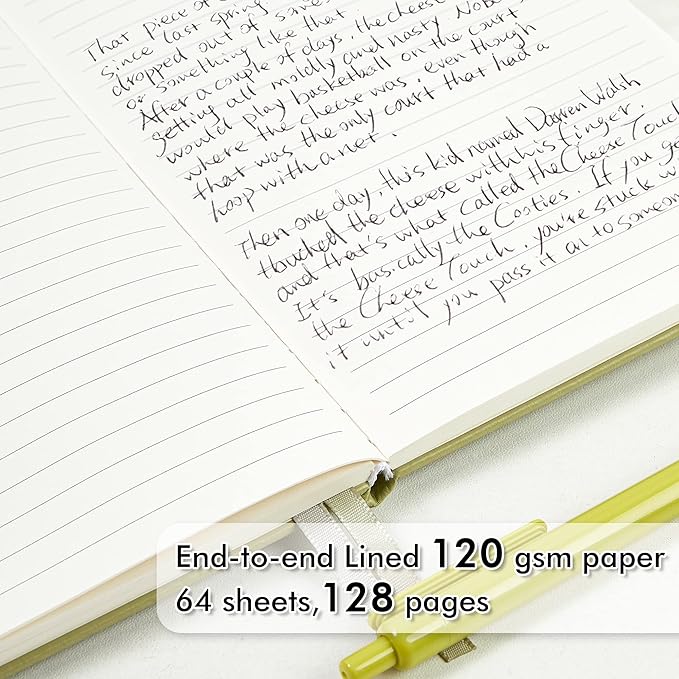 That piece of
since last spring
dropped out of some
or something like that
After a couple of days, the cheese
getting all moldly and nasty. Nobo
would play basketball on the court
where the cheese was, even though
that was the only court that had a
hoop with a net.
Then one day, this kid named Darren Walsh
touched the cheese with his finger,
and that's what called the Cheese Touch
It's basically the Cooties. If you ge
the Cheese Touch, you're stuck w
it until you pass it on to someon
End-to-end Lined 120 gsm paper
64 sheets,128 pages